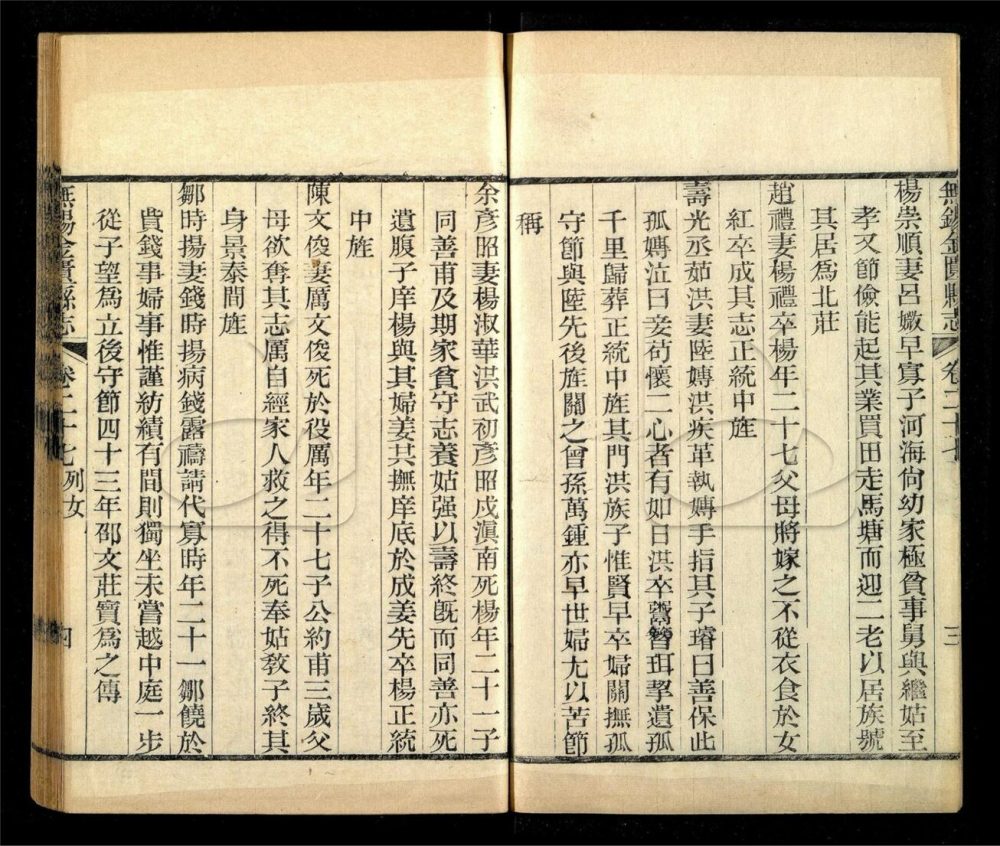 無錫金匱縣志 卷二十七 三
楊崇順妻呂媺早寡子河海尙幼家極貧事舅與繼姑至
孝又節儉能起其業買田走馬塘而迎二老以居族號
其居爲北莊
趙禮妻楊禮卒楊年二十七父母將嫁之不從衣食於女
紅卒成其志正統中旌
壽光丞茹洪妻陸嫥洪疾革執嫥手指其子璿曰善保此
孤嫥泣曰妾苟懷二心者有如日洪卒鬻簪珥挈遺孤
千里歸葬正統中旌其門洪族子惟賢早卒婦關撫孤
守節與陸先後旌關之曾孫萬鍾亦早世婦尢以苦節
稱
余彥昭妻楊淑華洪武初彥昭戍滇南死楊年二十一子
同善甫及期家貧守志養姑强以壽終旣而同善亦死
遺腹子庠楊與其婦姜共撫庠底於成姜先卒楊正統
中旌
陳文俊妻厲文俊死於役厲年二十七子公約甫三歲父
母欲奪其志厲自經家人救之得不死奉姑敎子終其
身景泰間旌
鄒時揚妻錢時揚病錢露禱請代寡時年二十一鄒饒於
貲錢事婦事惟謹紡績有間則獨坐未嘗越中庭一步
從子望爲立後守節四十三年邵文莊寶爲之傳
無錫金匱縣志 卷二十七 列女 四